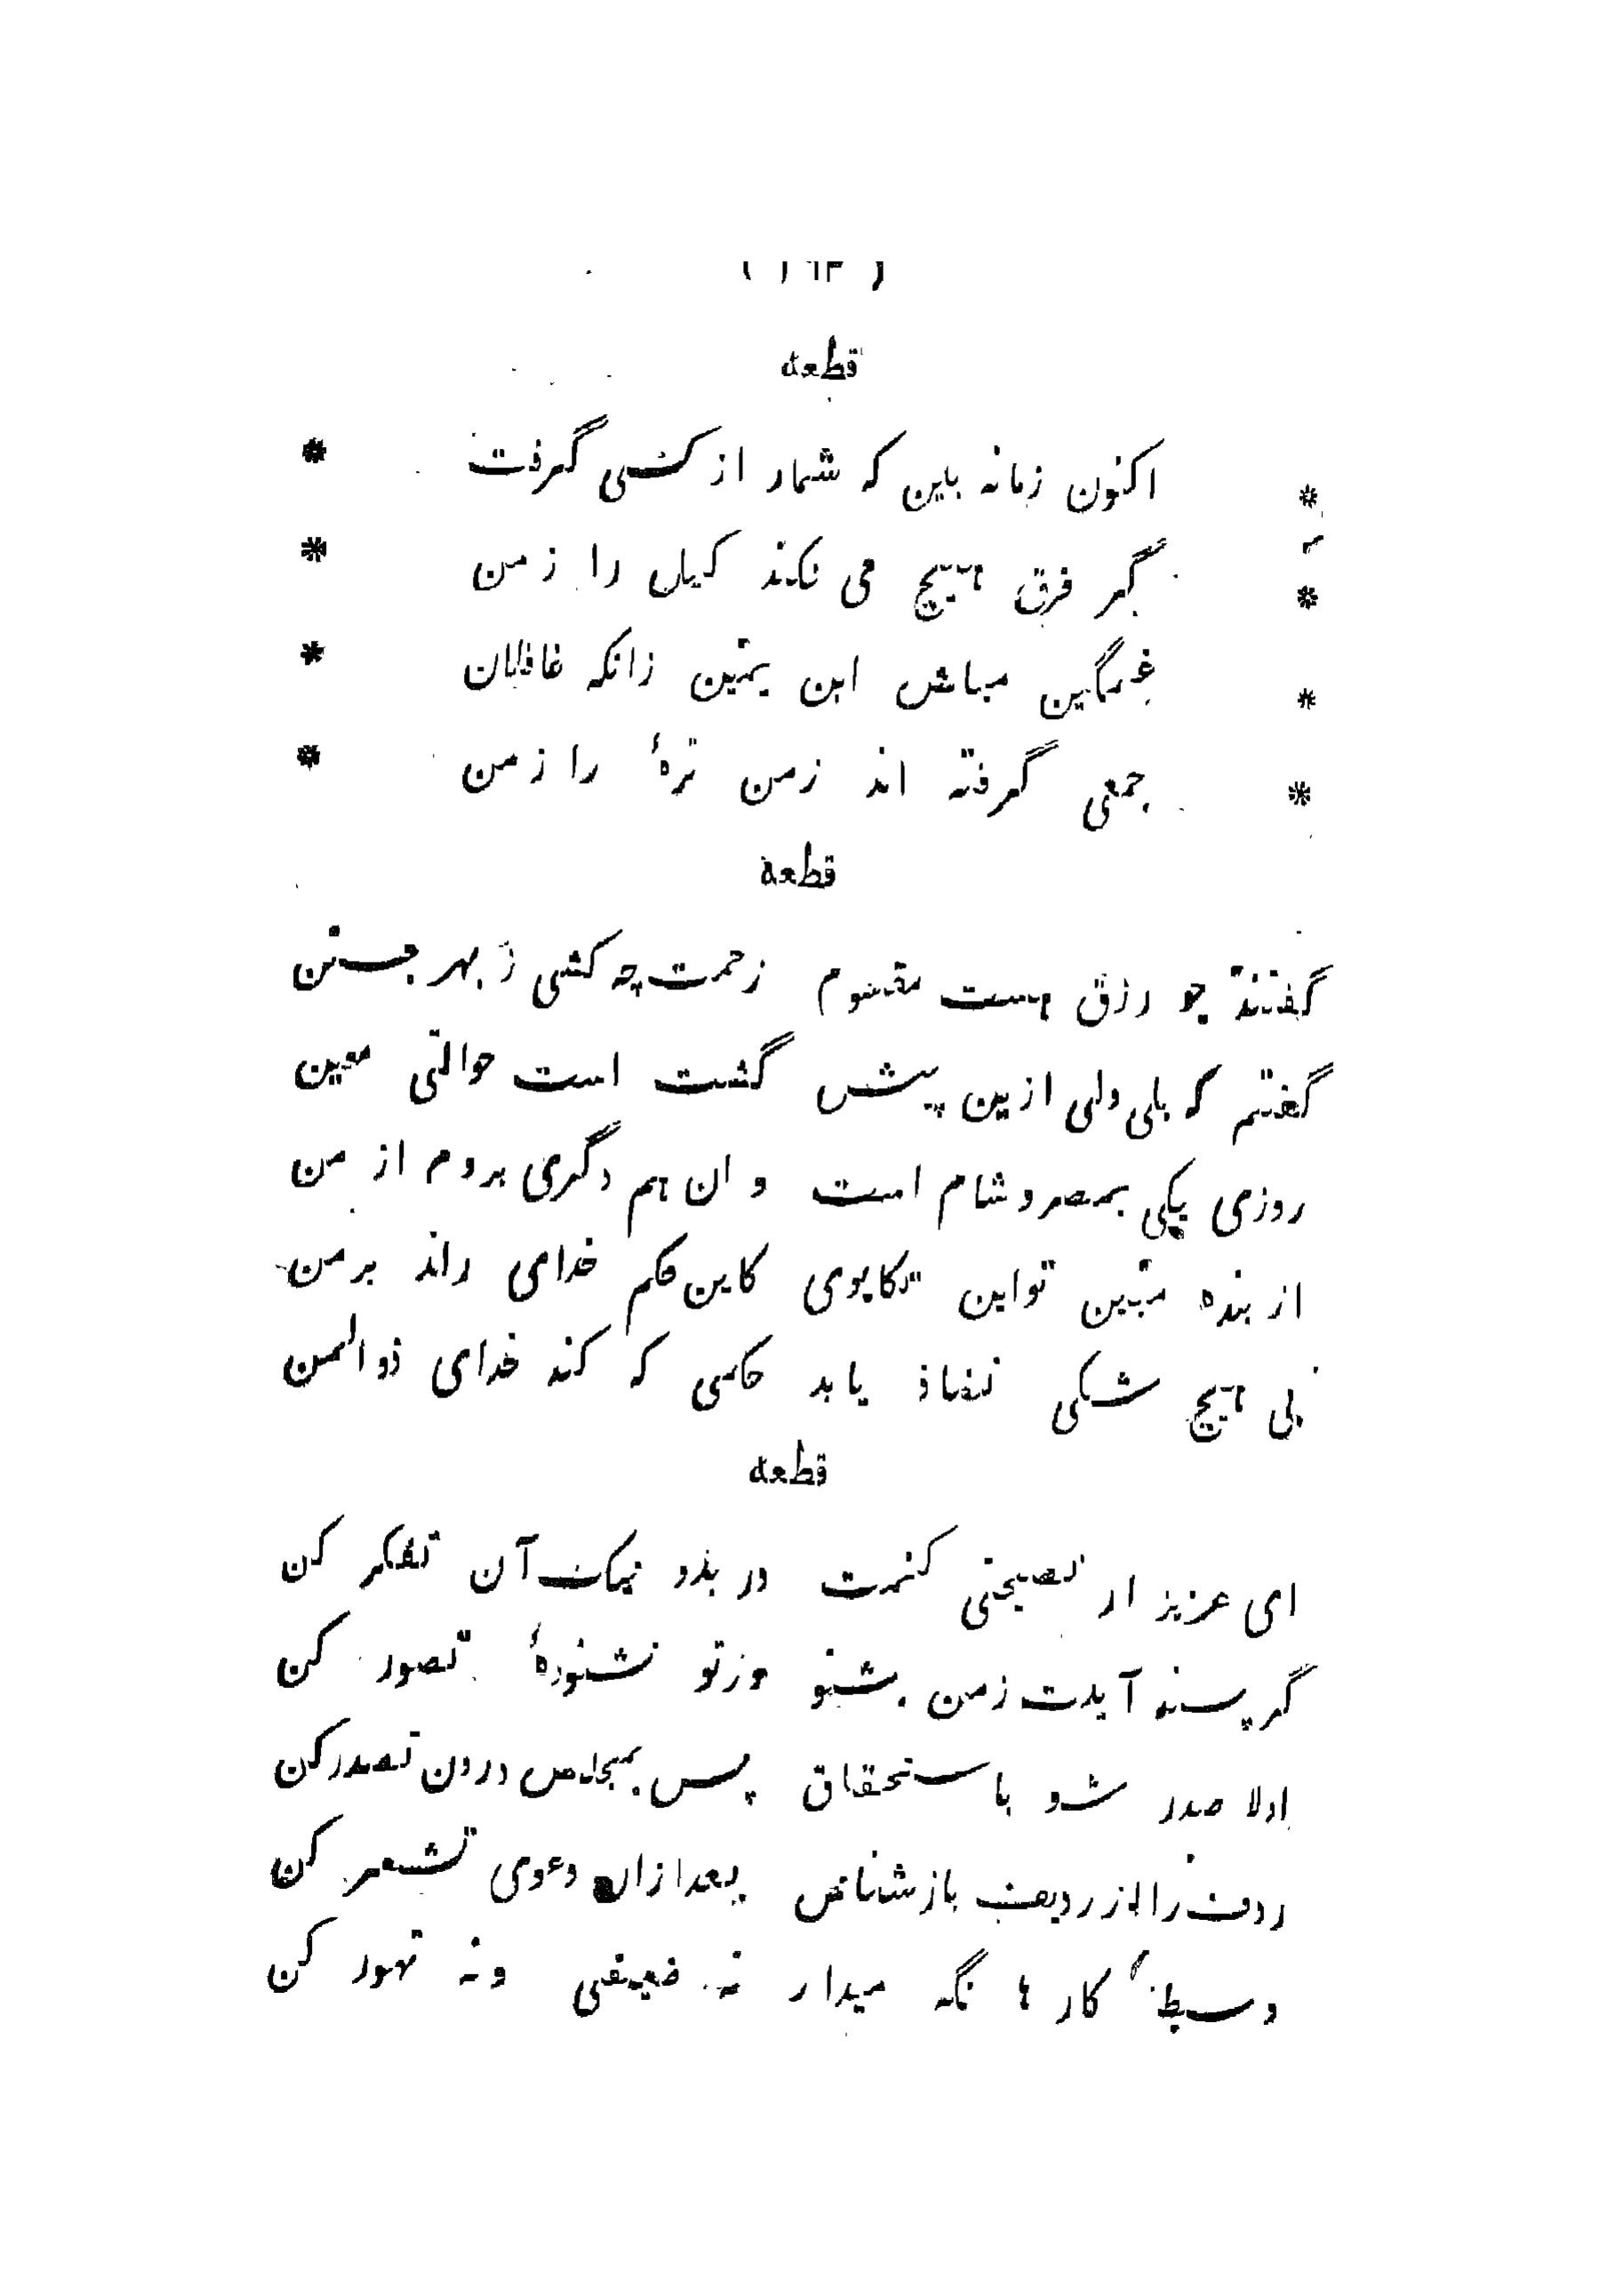 قطعه
* اکنون زمانه بین که شمار از کسی گرفت *
* گر فرق هیچ می نکند کیل را ز من *
* غمگین مباش ابن یمین زانکه غافلان *
* جمعی گرفته اند زمن ترهٔ را ز من *
قطعه
گفتند چو رزق هست مقسوم زحمت چه کشی ز بهر جستن
گفتم که بلی ولی ازین پیش گشت است حوالتی معین
روزی یکی بمصر و شام است و ان هم دگری بروم از من
از بنده مبین تو این تکاپوی کاین حکم خدای راند بر من
بی هیچ شکی نفاذ یابد حکمی که کند خدای ذو المن
قطعه
ای عزیز ار نصیحتی کنمت در بد و نیک آن تفکر کن
گر پسند آیدت ز من بشنو ورنه نشنودهٔ تصور کن
اولا صدر شو باستحقاق پس بمجلس درون تصدر کن
ردف را از ردیف باز شناس بعد ازان دعوی تشعر کن
وسط کار ها نگه میدار نه ضعیفی و نه تهور کن